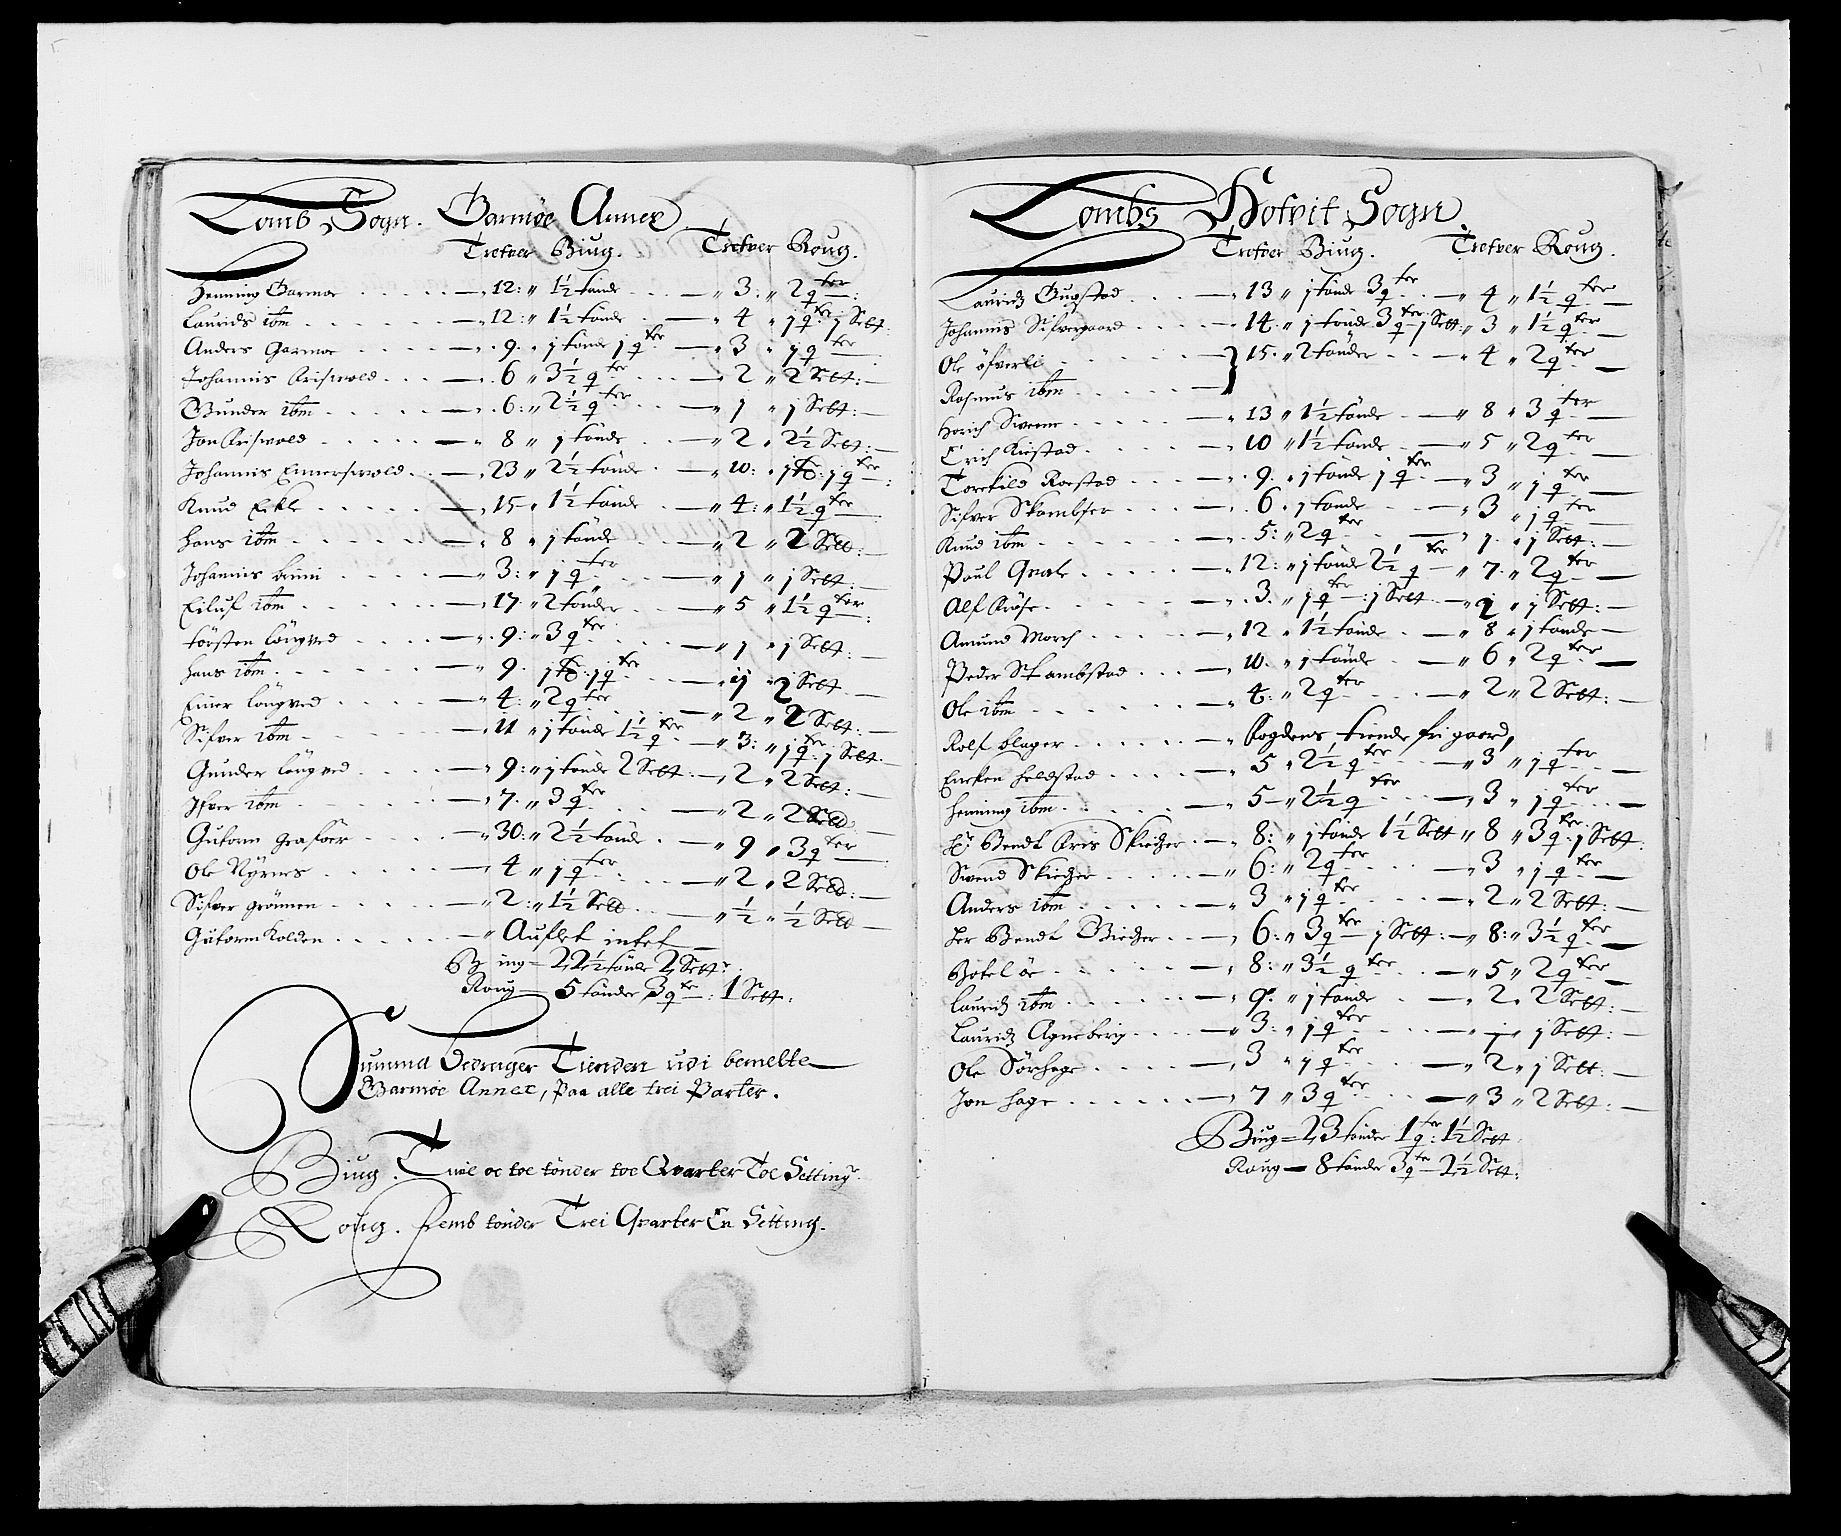 Lomb Sogn. Garmoe Annex
Trefver Biug. Trefver Roug.
Henning Garmoe — 12: 1½ tönde — 3. 2 qter
Laurids ibm — 12: 1½ tönde — 4 j qter j Sett:
Anders Garmoe — 9. j tönde j qter — 3 j qter
Johannis — 6 3½ qter — 2 2 Sett:
Gunder ibm — 6: 2½ qter — j j Sett:
Jon — 8 j tönde — 2 2½ Sett:
Johannis — 23 2½ tönde — 10: j t: j qter
Knud — 15 1½ tönde — 4: 1½ qter
Hans ibm — 8 j tönde — 2 2 Sett:
Johannis — 3: j qter — j j Sett:
Eiluf ibm — 17 2 tönder — 5 1½ qter
Törsten Löngved — 9: 3 qter — j j Sett:
Hans ibm — 9. j t: j qter — 2 Sett
Einer Löngved — 4: 2 qter — 2 2 Sett:
Sifver ibm — 11 j tönde 1½ qter — 3: j qter j Sett
Gunder Löngved — 9: j tönde 2 Sett — 2 2 Sett:
Ifver ibm — 7. 3 qter — 2 2 Sett
Gutorm — 30: 2½ tönde — 9 3 qter
Ole Nyrnes — 4 j qter — 2 2 Sett:
Sifver — 2: 1½ Sett — ½ ½ Sett
Gutorm Kolden — Auflet intet
Biug — 22½ tönde 2 Sett:
Roug — 5 tönder 3 qter: 1 Sett:
Summa bedrager Tienden udi bemelte
Garmoe Annex, Paa alle trei Parter.
Biug. Tiue oc toe tönder toe Qvarter Toe Setting
Roug. Femb tönder Trei Qvarter En Setting.
Lombs Hofvit Sogn
Trefver Biug. Trefver Roug.
Lauridz — 13 j tönde 3 qter — 4 1½ qter
Johannis — 14. j tönde 3 qter j Sett: 3 1½ qter
Ole öfverli — } 15. 2 tönder — 4 2 qter
Rasmus ibm —
— 13 1½ tönde — 8 3 qter
Erich — 10 1½ tönde — 5 2 qter
Torckild — 9. j tönde j qter — 3 j qter
Sifver — 6. j tönde — 3 j qter
Knud ibm — 5: 2 qter — j. j Sett:
Poul — 12: j tönde 2½ qter — 7. 2 qter
Alf — 3. j qter: j Sett — 2 j Sett:
Amund Morch — 12 1½ tönde — 8 j tönde
Peder — 10. j tönde — 6 2 qter
Ole ibm — 4: 2 qter — 2 2 Sett:
Rolf — Fogdens tiende fri gaard,
— 5 2½ qter — 3 j qter
Henning ibm — 5 2½ qter — 3 j qter
Bendt — 8: j tönde 1½ Sett 8 3 qter: j Sett:
Svend — 6: 2 qter — 3 j qter
Anders ibm — 3 j qter — 2 2 Sett:
Her Bendt — 6: 3 qter j Sett: — 8: 3½ qter
— 8: 3½ qter — 5 2 qter
Lauridz ibm — 9. j tönde — 2. 2 Sett:
Lauridz — 3: j qter — j j Sett:
Ole — 3 j qter — 2 j Sett:
Jon — 7 3 qter — 3 2 Sett:
Biug = 23 tönder 1 qter: 1½ Sett
Roug — 8 tönde 3 qter 2½ Sett: